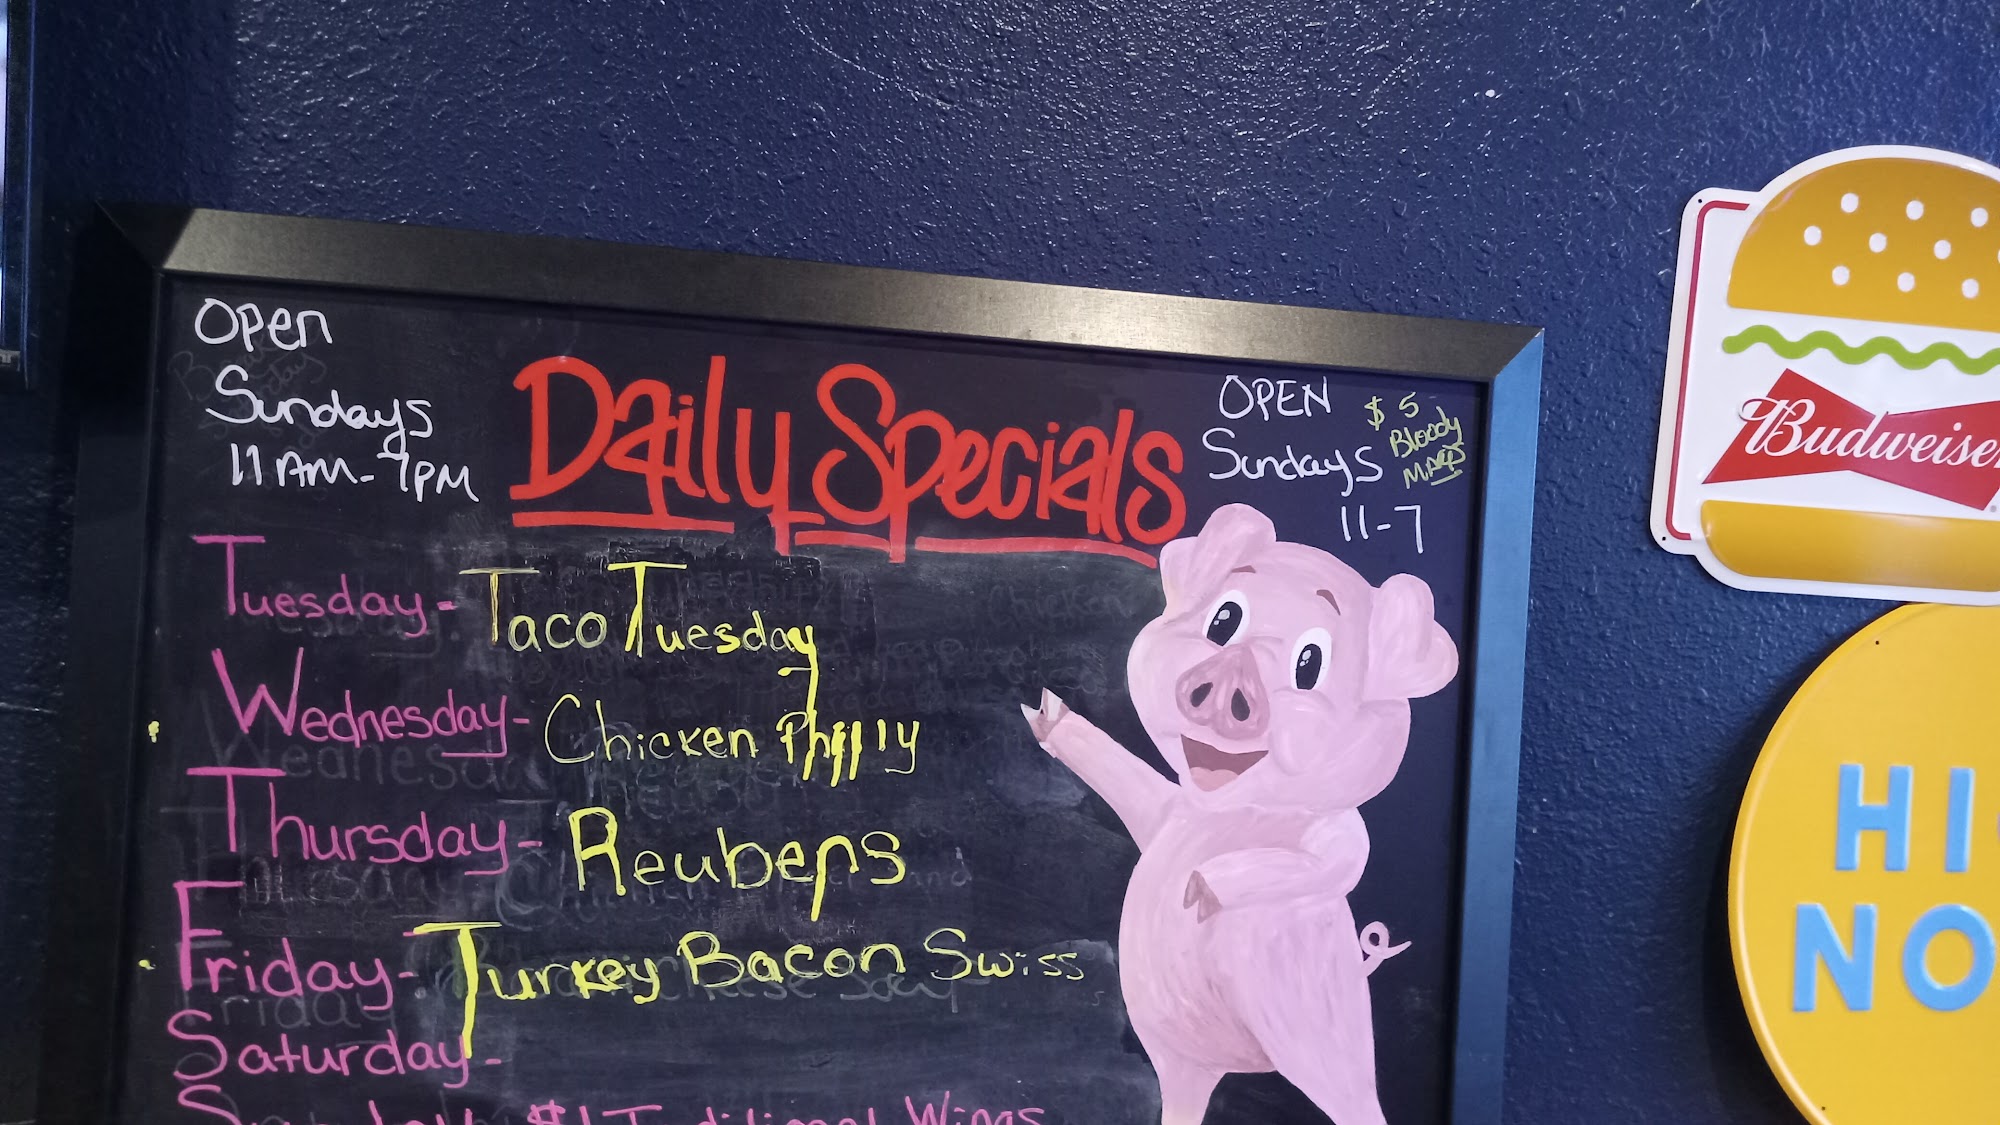 Open
Sundays
11AM-7PM
Daily Specials
OPEN
Sundays
11-7
$5
Bloody
Tuesday- Taco Tuesday
Wednesday- Chicken Philly
Thursday- Reubens
Friday- Turkey Bacon Swiss
Saturday-
Sunday $1 Traditional Wings
Budweiser
HI
NO